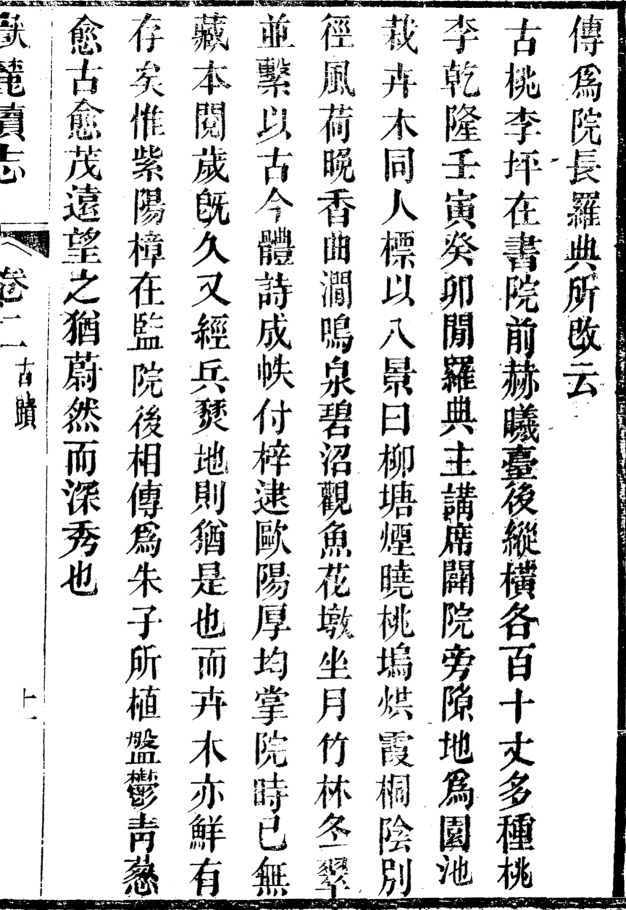 傳爲院長羅典所改云
古桃李坪在書院前赫曦臺後縱橫各百十丈多種桃
李乾隆壬寅癸卯閒羅典主講席闢院旁隙地爲園池
栽卉木同人標以八景曰柳塘煙曉桃塢烘霞桐陰別
徑風荷晚香曲澗鳴泉碧沼觀魚花墩坐月竹林冬翠
並繫以古今體詩成帙付梓逮歐陽厚均掌院時已無
藏本閱歲旣久又經兵燹地則猶是也而卉木亦鮮有
存矣惟紫陽樟在監院後相傳爲朱子所植盤鬱靑蔥
愈古愈茂遠望之猶蔚然而深秀也
嶽麓續志
卷二
古蹟